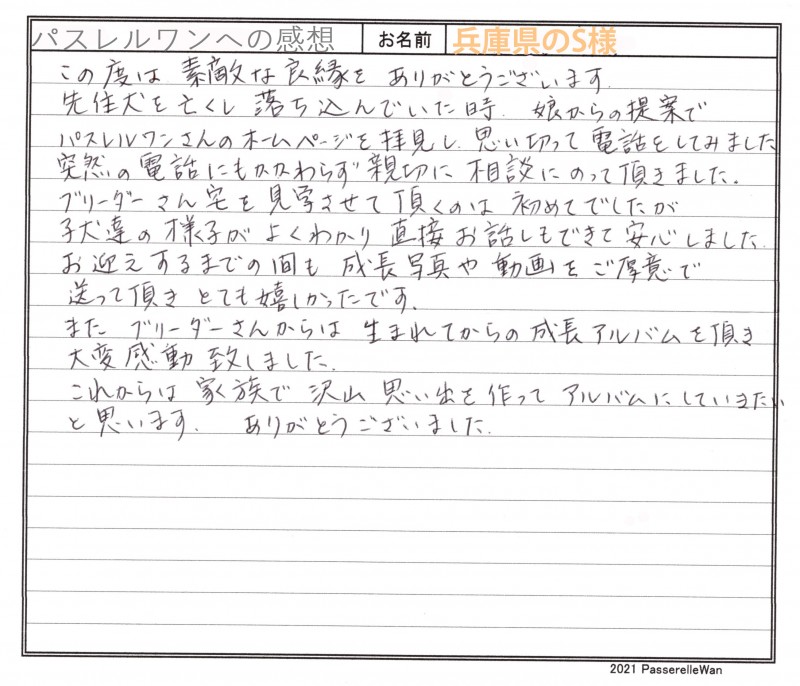 パスレルワンへの感想 お名前 兵庫県のS様
この度は 素敵な良縁を ありがとうございます.
先住犬を亡くし 落ち込んでいた時. 娘からの提案で
パスレルワンさんのホームページを拝見し. 思い切って 電話をしてみました
突然の電話にもかかわらず 親切に 相談にのって頂きました.
ブリーダーさん宅を見学させて 頂くのは 初めてでしたが
子犬達の様子が よくわかり 直接お話しもできて 安心しました.
お迎えするまでの間も 成長写真や 動画をご厚意で
送って頂き とても嬉しかったです.
また ブリーダーさんからは 生まれてからの成長アルバムを頂き
大変感動致しました.
これからは 家族で 沢山 思い出を作って アルバムにしていきたい
と思います. ありがとうございました.
2021 PasserelleWan